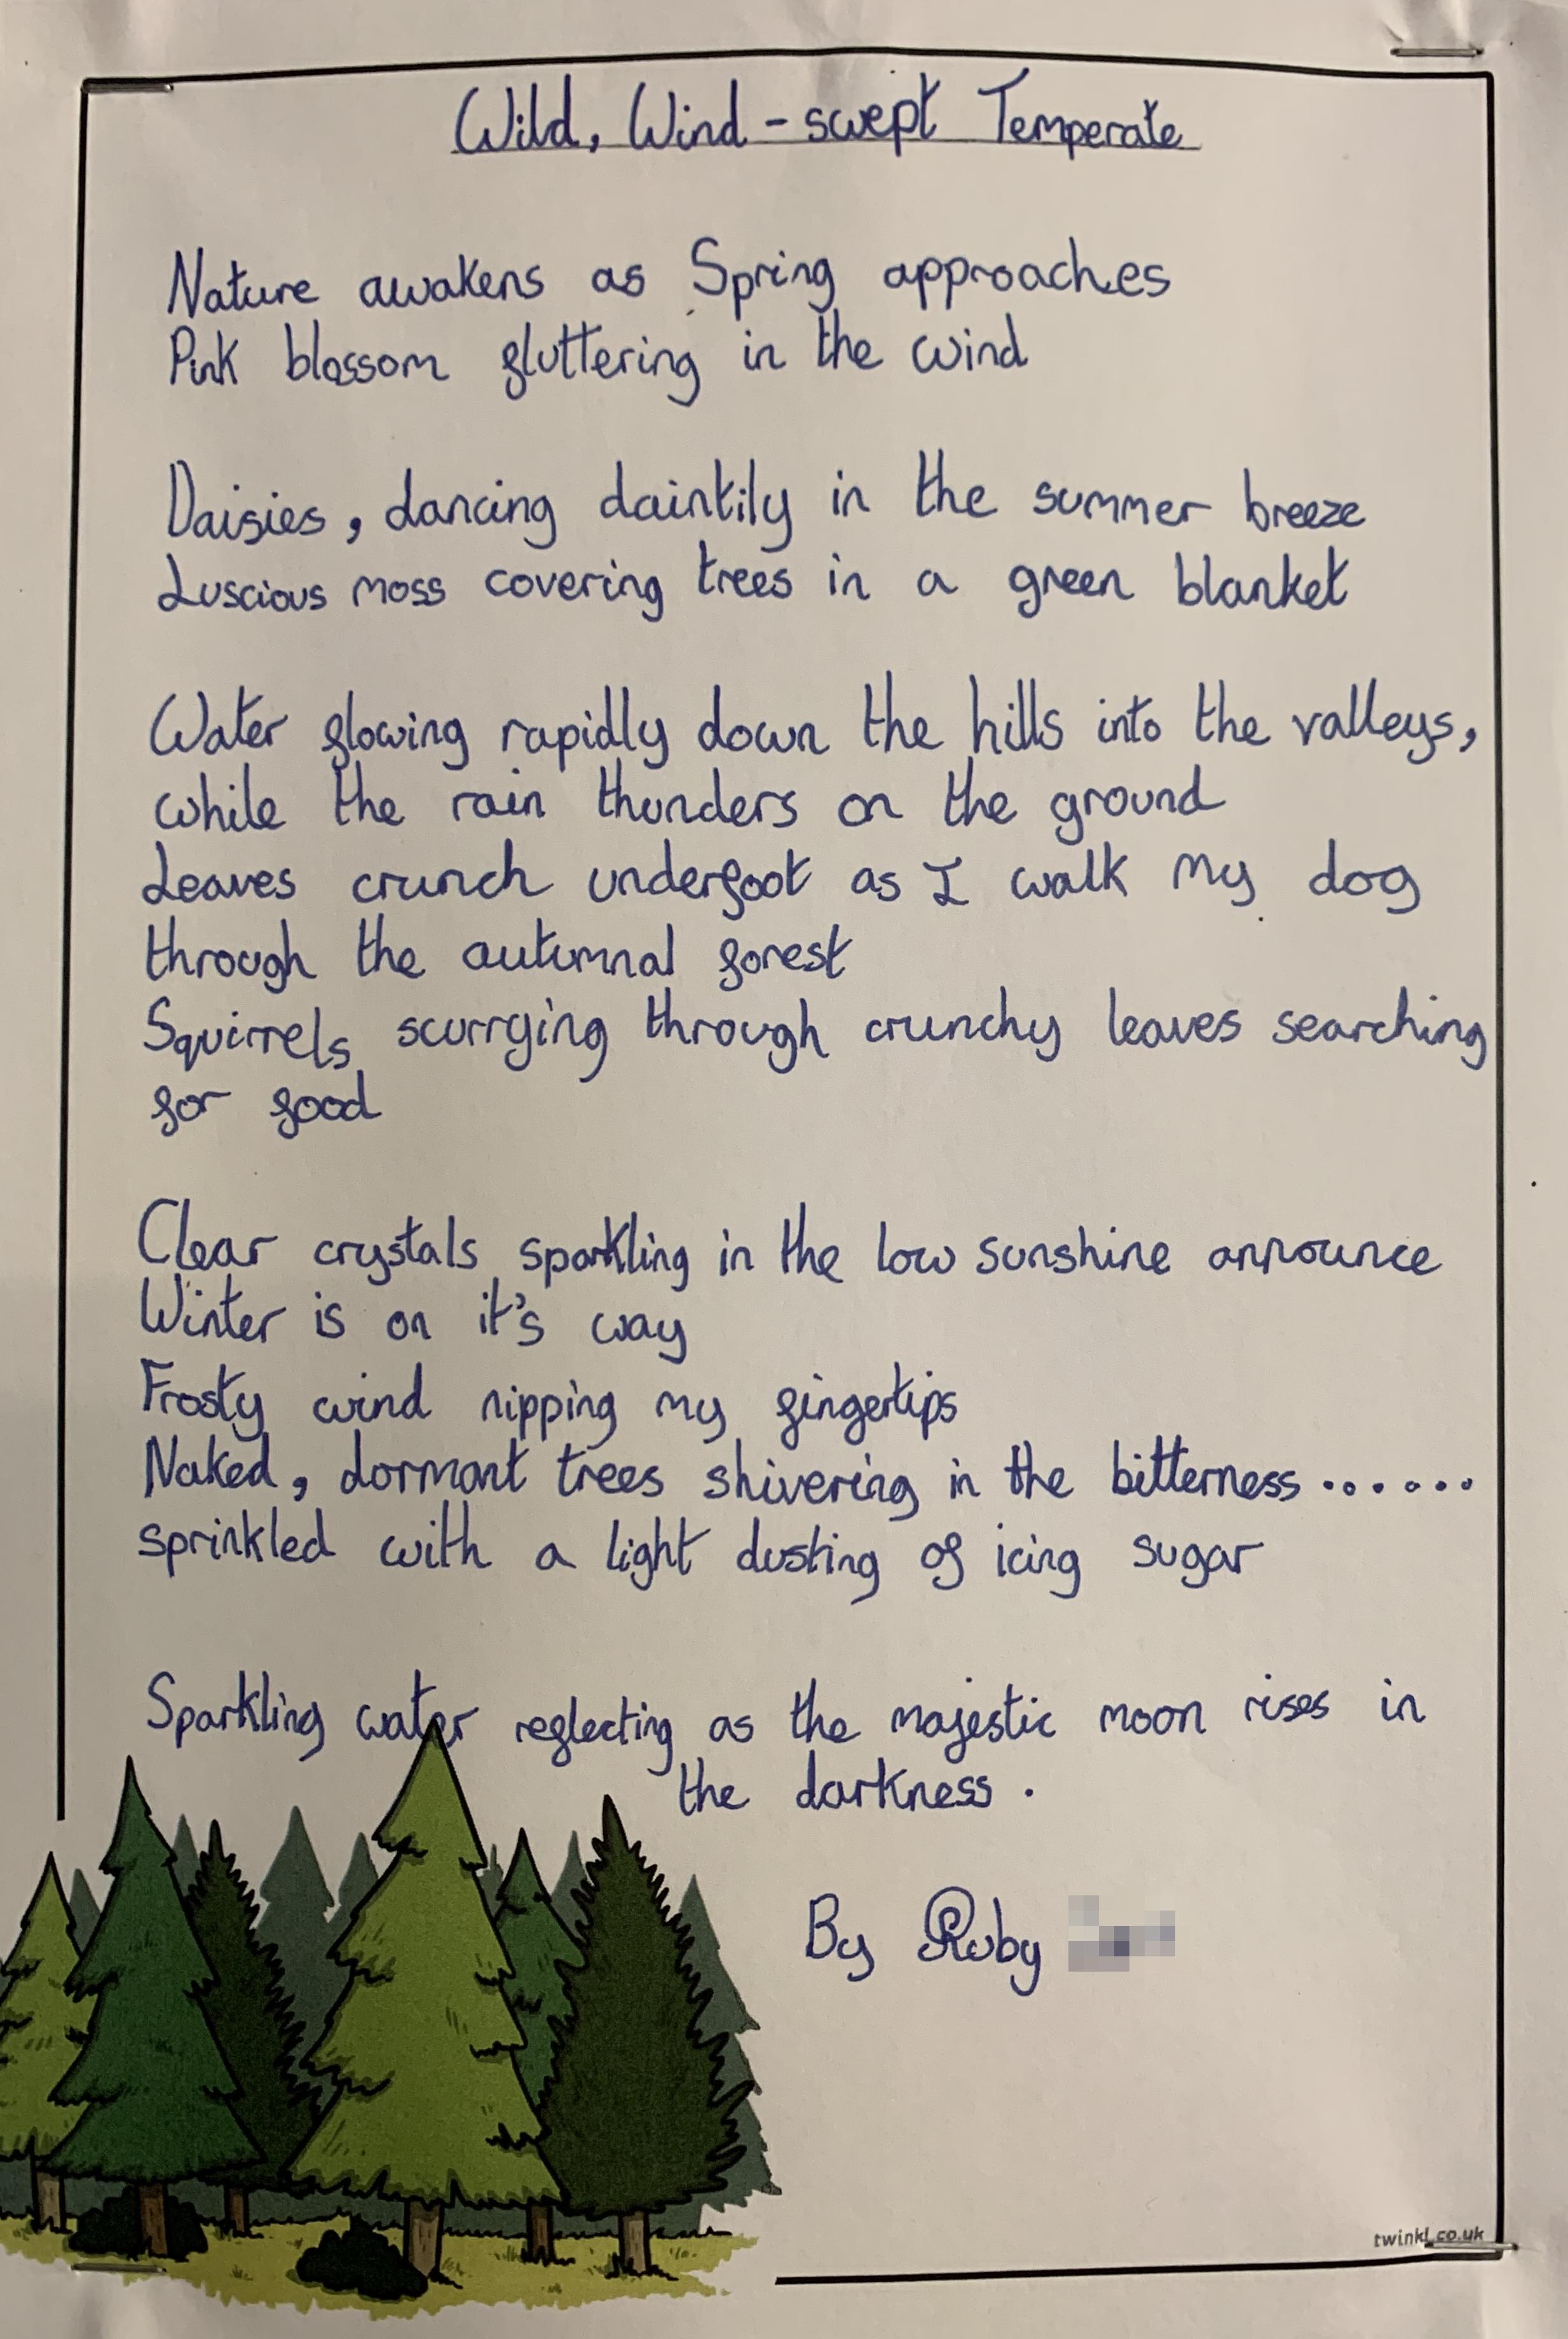 Wild, Wind-swept Temperate
Nature awakens as Spring approaches
Pink blossom fluttering in the wind
Daisies, dancing daintily in the summer breeze
Luscious moss covering trees in a green blanket
Water flowing rapidly down the hills into the valleys,
while the rain thunders on the ground
Leaves crunch underfoot as I walk my dog
through the autumnal forest
Squirrels scurrying through crunchy leaves searching
for food
Clear crystals sparkling in the low sunshine announce
Winter is on it's way
Frosty wind nipping my fingertips
Naked, dormant trees shivering in the bitterness......
sprinkled with a light dusting of icing sugar
Sparkling water reflecting as the majestic moon rises in
the darkness.
By Ruby
twinkl.co.uk